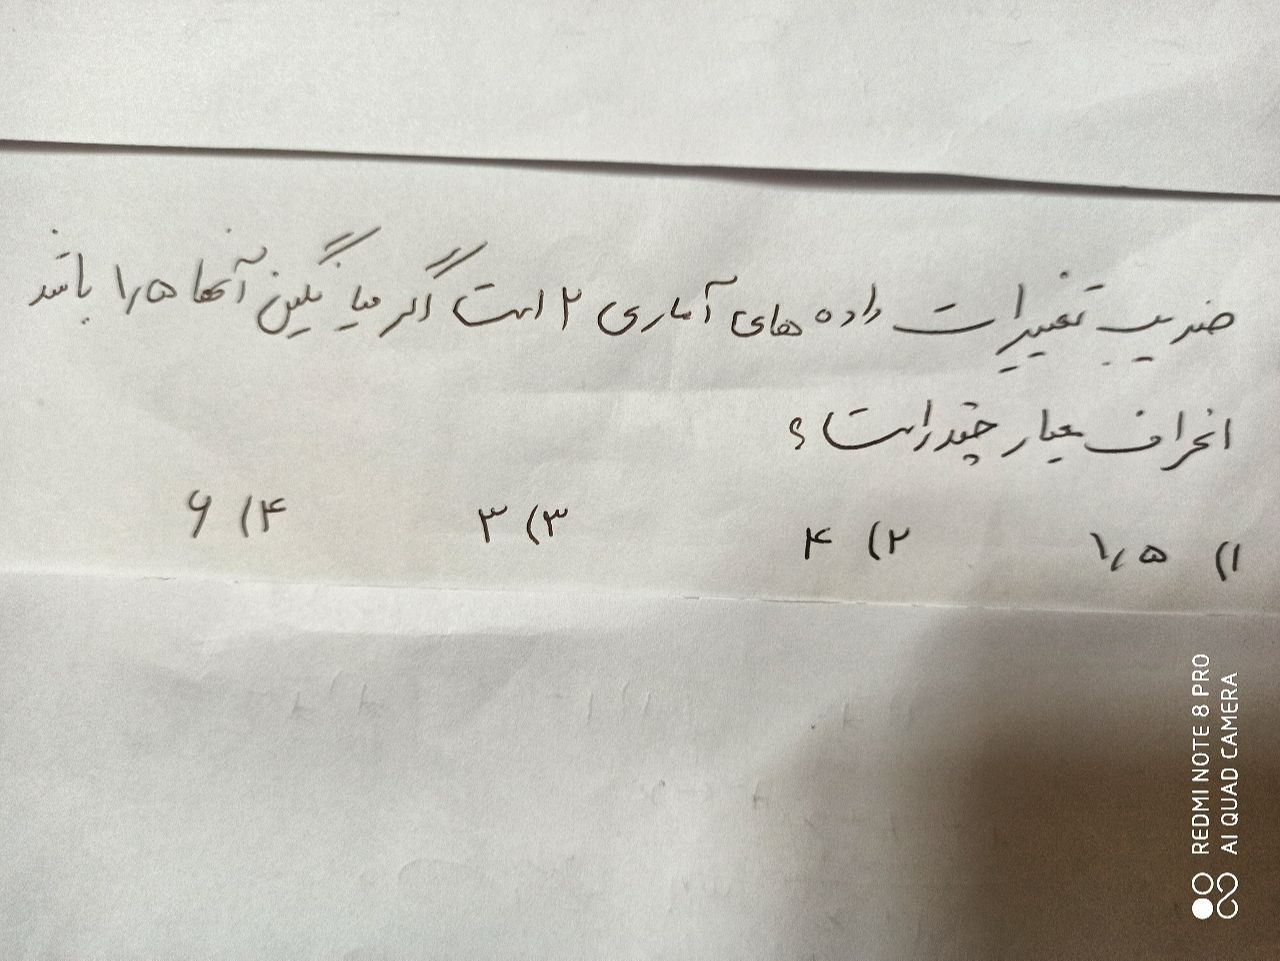 ضریب تغییرات داده های آماری ۲ است اگر میانگین آنها ۱٫۵ باشد
انحراف معیار چقدر است؟
۱) ۱٫۵ ۲) ۴ ۳) ۳ ۴) ۶
REDMI NOTE 8 PRO
AI QUAD CAMERA